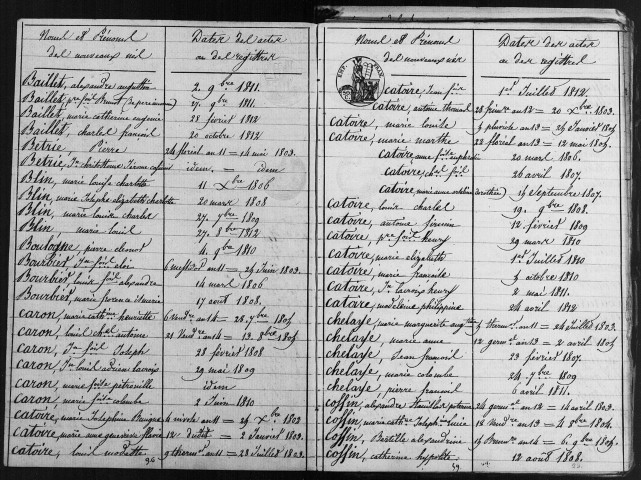 Noms et Prénoms Dates des actes
des nouveaux nés ou des registres
Baillet, alexandre augustin 2. 9bre 1811.
Baillet, 27. 9bre 1811.
Baillet, marie catherine eugenie 28 fevrier 1812
Baillet, charles francois 20 octobre 1812
Betrie, Pierre 24 floréal an 11 = 14 mai 1803.
Betrie, idem = idem
Blin, marie louise charlotte 11 Xbre 1806
Blin, marie Josephe elizabeth charlotte 20 mars 1808
Blin, marie louise charlot 27. 7bre 1809
Blin, marie louis 27. 8bre 1812
Boulogne, pierre clement 4. 9bre 1810
Bourbier, Jn fois éloi 6 messidor an 11 = 25 Juin 1803.
Bourbier, louis fois alexandre 14 mars 1806
Bourbier, 17 aout 1808.
caron, marie cathne henriette 6 vendre an 14 = 28. 7bre 1805
caron, louis chles antoine 21 vendre an 14 = 13. 8bre 1805
caron, Jn fois Joseph 28 fevrier 1808
caron, Jn louis adrien lacroix 29 mai 1809
caron, marie foise petronille idem
caron, marie foise colombe 2 Juin 1810
catoire, marie Josephine 4 nivose an 11 = 25 Xbre 1802
catoire, marie anne genevieve flavie 12 dudit = 2 Janvier 1803.
catoire, louis modeste 9 thermor an 11 = 28 Juillet 1803.
Noms et Prénoms Dates des actes
des nouveaux nés ou des registres
catoire, Jean fois 1er Juillet 1812.
catoire, antoine thomas 28 frimre an 12 = 20 Xbre 1803.
catoire, marie louise 5 pluviose an 13 = 25 Janvier 1805
catoire, marie marthe 22 floréal an 13 = 12 mai 1805.
catoire, anne foise euphrasie 20 mars 1806.
catoire, chles fois 26 avril 1807.
catoire, marie anne dorothée 15 Septembre 1807.
catoire, louis charles 19. 9bre 1808.
catoire, antoine firmin 12 fevrier 1809
catoire, pre fois henry 29 mars 1810
catoire, marie elizabeth 1er Juillet 1810
catoire, marie francoise 5 octobre 1810
catoire, Jn lacroix henry 2 mai 1811.
catoire, madeleine philippine 24 avril 1812
chelaye, marie marguerite augtine 5 thermor an 11 = 24 Juillet 1803.
chelaye, marie anne 12 germor an 13 = 2 avril 1805
chelaye, Jean francois 23 fevrier 1807.
chelaye, marie colombe 24. 7bre 1809
chelaye, pierre francois 6 avril 1811.
coffin, alexandre 24 germor an 11 = 14 avril 1803.
coffin, marie cathne Josephe lucie 12 vendre an 13 = 4 8bre 1804.
coffin, Basille alexandrine 15 Brumre an 14 = 6. 9bre 1805.
coffin, catherine hypolite 12 aout 1808.